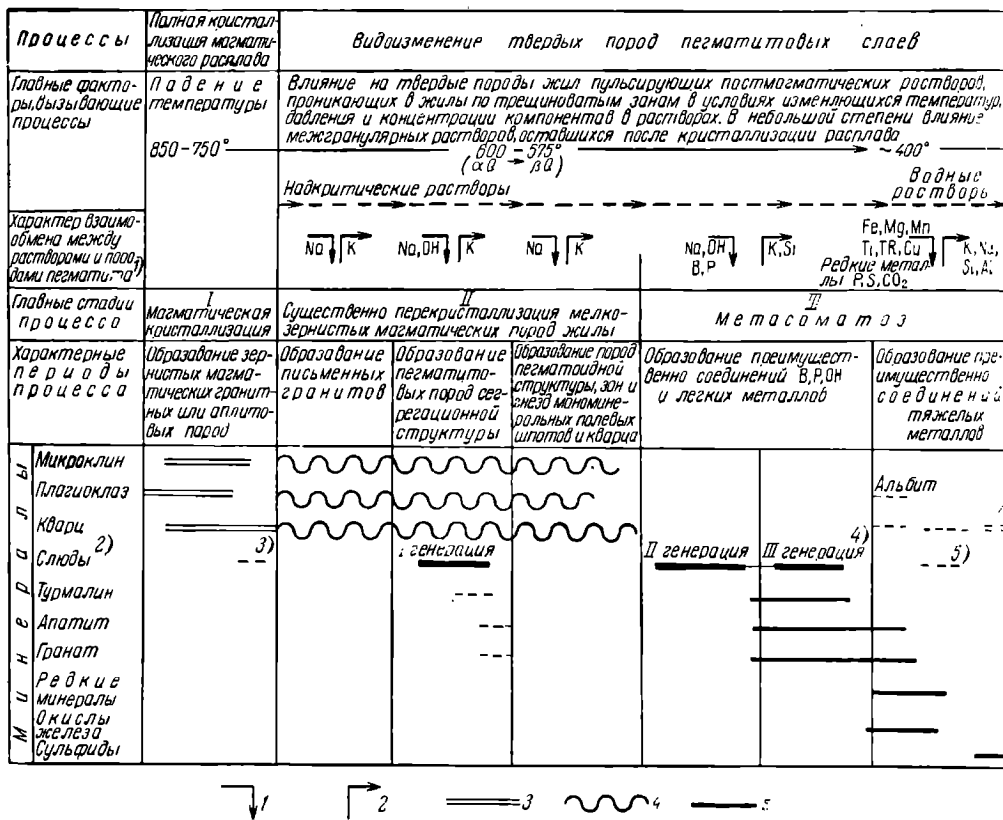 Процессы
Полная кристал-
лизация магмати-
ческого расплава
Видоизменение твердых пород пегматитовых слаев
Главные факто-
ры, вызывающие
процессы
Падение
температуры
850-750°
Влияние на твердые породы жил пульсирующих постмагматических растворов,
проникающих в жилы по трещиноватым зонам в условиях изменяющихся температур,
давления и концентрации компонентов в растворах. В небольшой степени влияние
межгранулярных растворов, оставшихся после кристаллизации расплава
600 - 575°
(αQ → βQ)
~400°
Надкритические растворы
Водные
растворы
Характер взаимо-
обмена между
растворами и поро-
дами пегматита 1)
Na K
Na, OH K
Na K
Na, OH
B, P
K, Si
Fe, Mg, Mn
Ti, TR, Cu
Редкие метал-
лы P, S, CO2
K, Na,
Si, Al
Главные стадии
процесса
I
Магматическая
кристаллизация
II
Существенно перекристаллизация мелко-
зернистых магматических пород жилы
III
Метасоматоз
Характерные
периоды
процесса
Образование зер-
нистых магма-
тических гранит-
ных или аплито-
вых парод
Образавание
письменных
гранитов
Образование
пегматито-
вых пород сег-
регационной
структуры
Образование пород
пегматоидной
структуры, зон и
гнезд мономине-
ральных полевых
шпатов и кварца
Образование преимущест-
венно соединений B, P, OH
и легких металлов
Образование пре-
имущественно
соединений
тяжелых
металлов
Минералы
Микроклин
Плагиоклаз
Альбит
Кварц
Слюды 2)
3)
I генерация
II генерация
III генерация
4)
5)
Турмалин
Апатит
Гранат
Редкие
минералы
Окислы
железа
Сульфиды
1 2 3 4 5